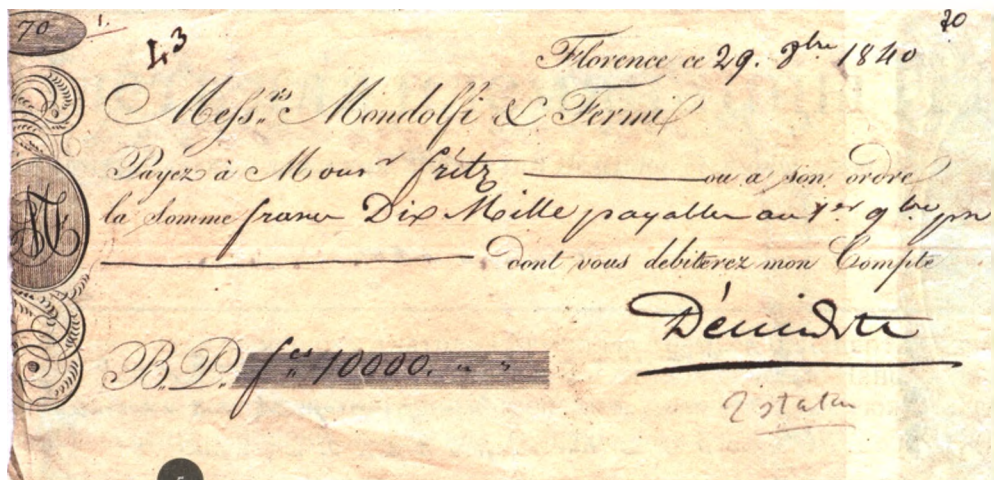 70
70
43
Florence ce 29. 8bre 1840
Messrs Mondolfi & Fermi
Payez à Monsr fritz ou a son ordre
la somme francs Dix Mille payables au 1er 9bre pn
dont vous debiterez mon Compte
B. P. fcs 10000. " "